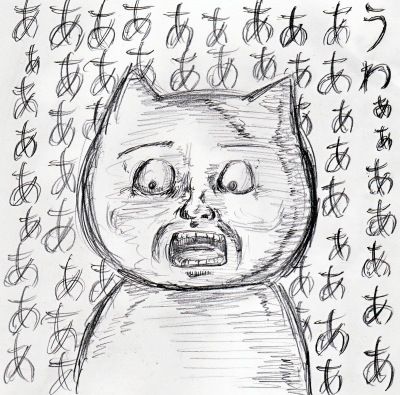 うわぁぁああああああ
ああああああああああ
あああああ
ああ
ああ
ああ
ああ
あああああ
ああああああああああ
あぁああああああああ